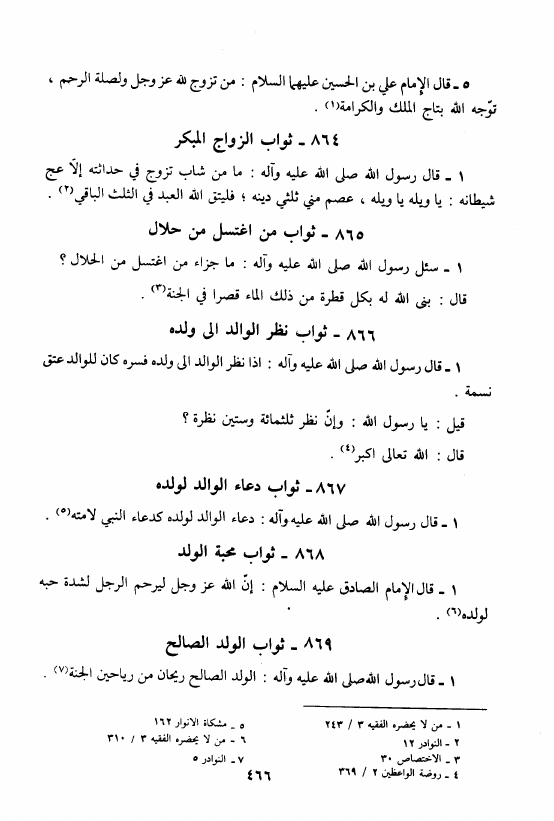 ٥ ـ قال الإمام علي بن الحسين عليهما السلام : من تزوج لله عز وجل ولصلة الرحم ،
توّجه الله بتاج الملك والكرامة(١) .
٨٦٤ ـ ثواب الزواج المبكر
١ ـ قال رسول الله صلى الله عليه وآله : ما من شاب تزوج في حداثته إلّا عج
شيطانه : يا ويله يا ويله ، عصم مني ثلثي دينه ؛ فليتق الله العبد في الثلث الباقي(٢) .
٨٦٥ ـ ثواب من اغتسل من حلال
١ ـ سئل رسول الله صلى الله عليه وآله : ما جزاء من اغتسل من الحلال ؟
قال : بنى الله له بكل قطرة من ذلك الماء قصرا في الجنة(٣) .
٨٦٦ ـ ثواب نظر الوالد الى ولده
١ ـ قال رسول الله صلى الله عليه وآله : اذا نظر الوالد الى ولده فسره كان للوالد عتق
نسمة .
قيل : يا رسول الله : وإنّ نظر ثلثمائة وستين نظرة ؟
قال : الله تعالى اكبر(٤) .
٨٦٧ ـ ثواب دعاء الوالد لولده
١ ـ قال رسول الله صلى الله عليه وآله : دعاء الوالد لولده كدعاء النبي لامته(٥) .
٨٦٨ ـ ثواب محبة الولد
١ ـ قال الإمام الصادق عليه السلام : إنّ الله عز وجل ليرحم الرجل لشدة حبه
لولده(٦) .
٨٦٩ ـ ثواب الولد الصالح
١ ـ قال رسول الله صلى الله عليه وآله : الولد الصالح ريحان من رياحين الجنة(٧) .
١ ـ من لا يحضره الفقيه ٣ / ٢٤٣
٢ ـ النوادر ١٢
٣ ـ الاختصاص ٣٠
٤ ـ روضة الواعظين ٢ / ٣٦٩
٥ ـ مشكاة الانوار ١٦٢
٦ ـ من لا يحضره الفقيه ٣ / ٣١٠
٧ ـ النوادر ٥
٤٦٦